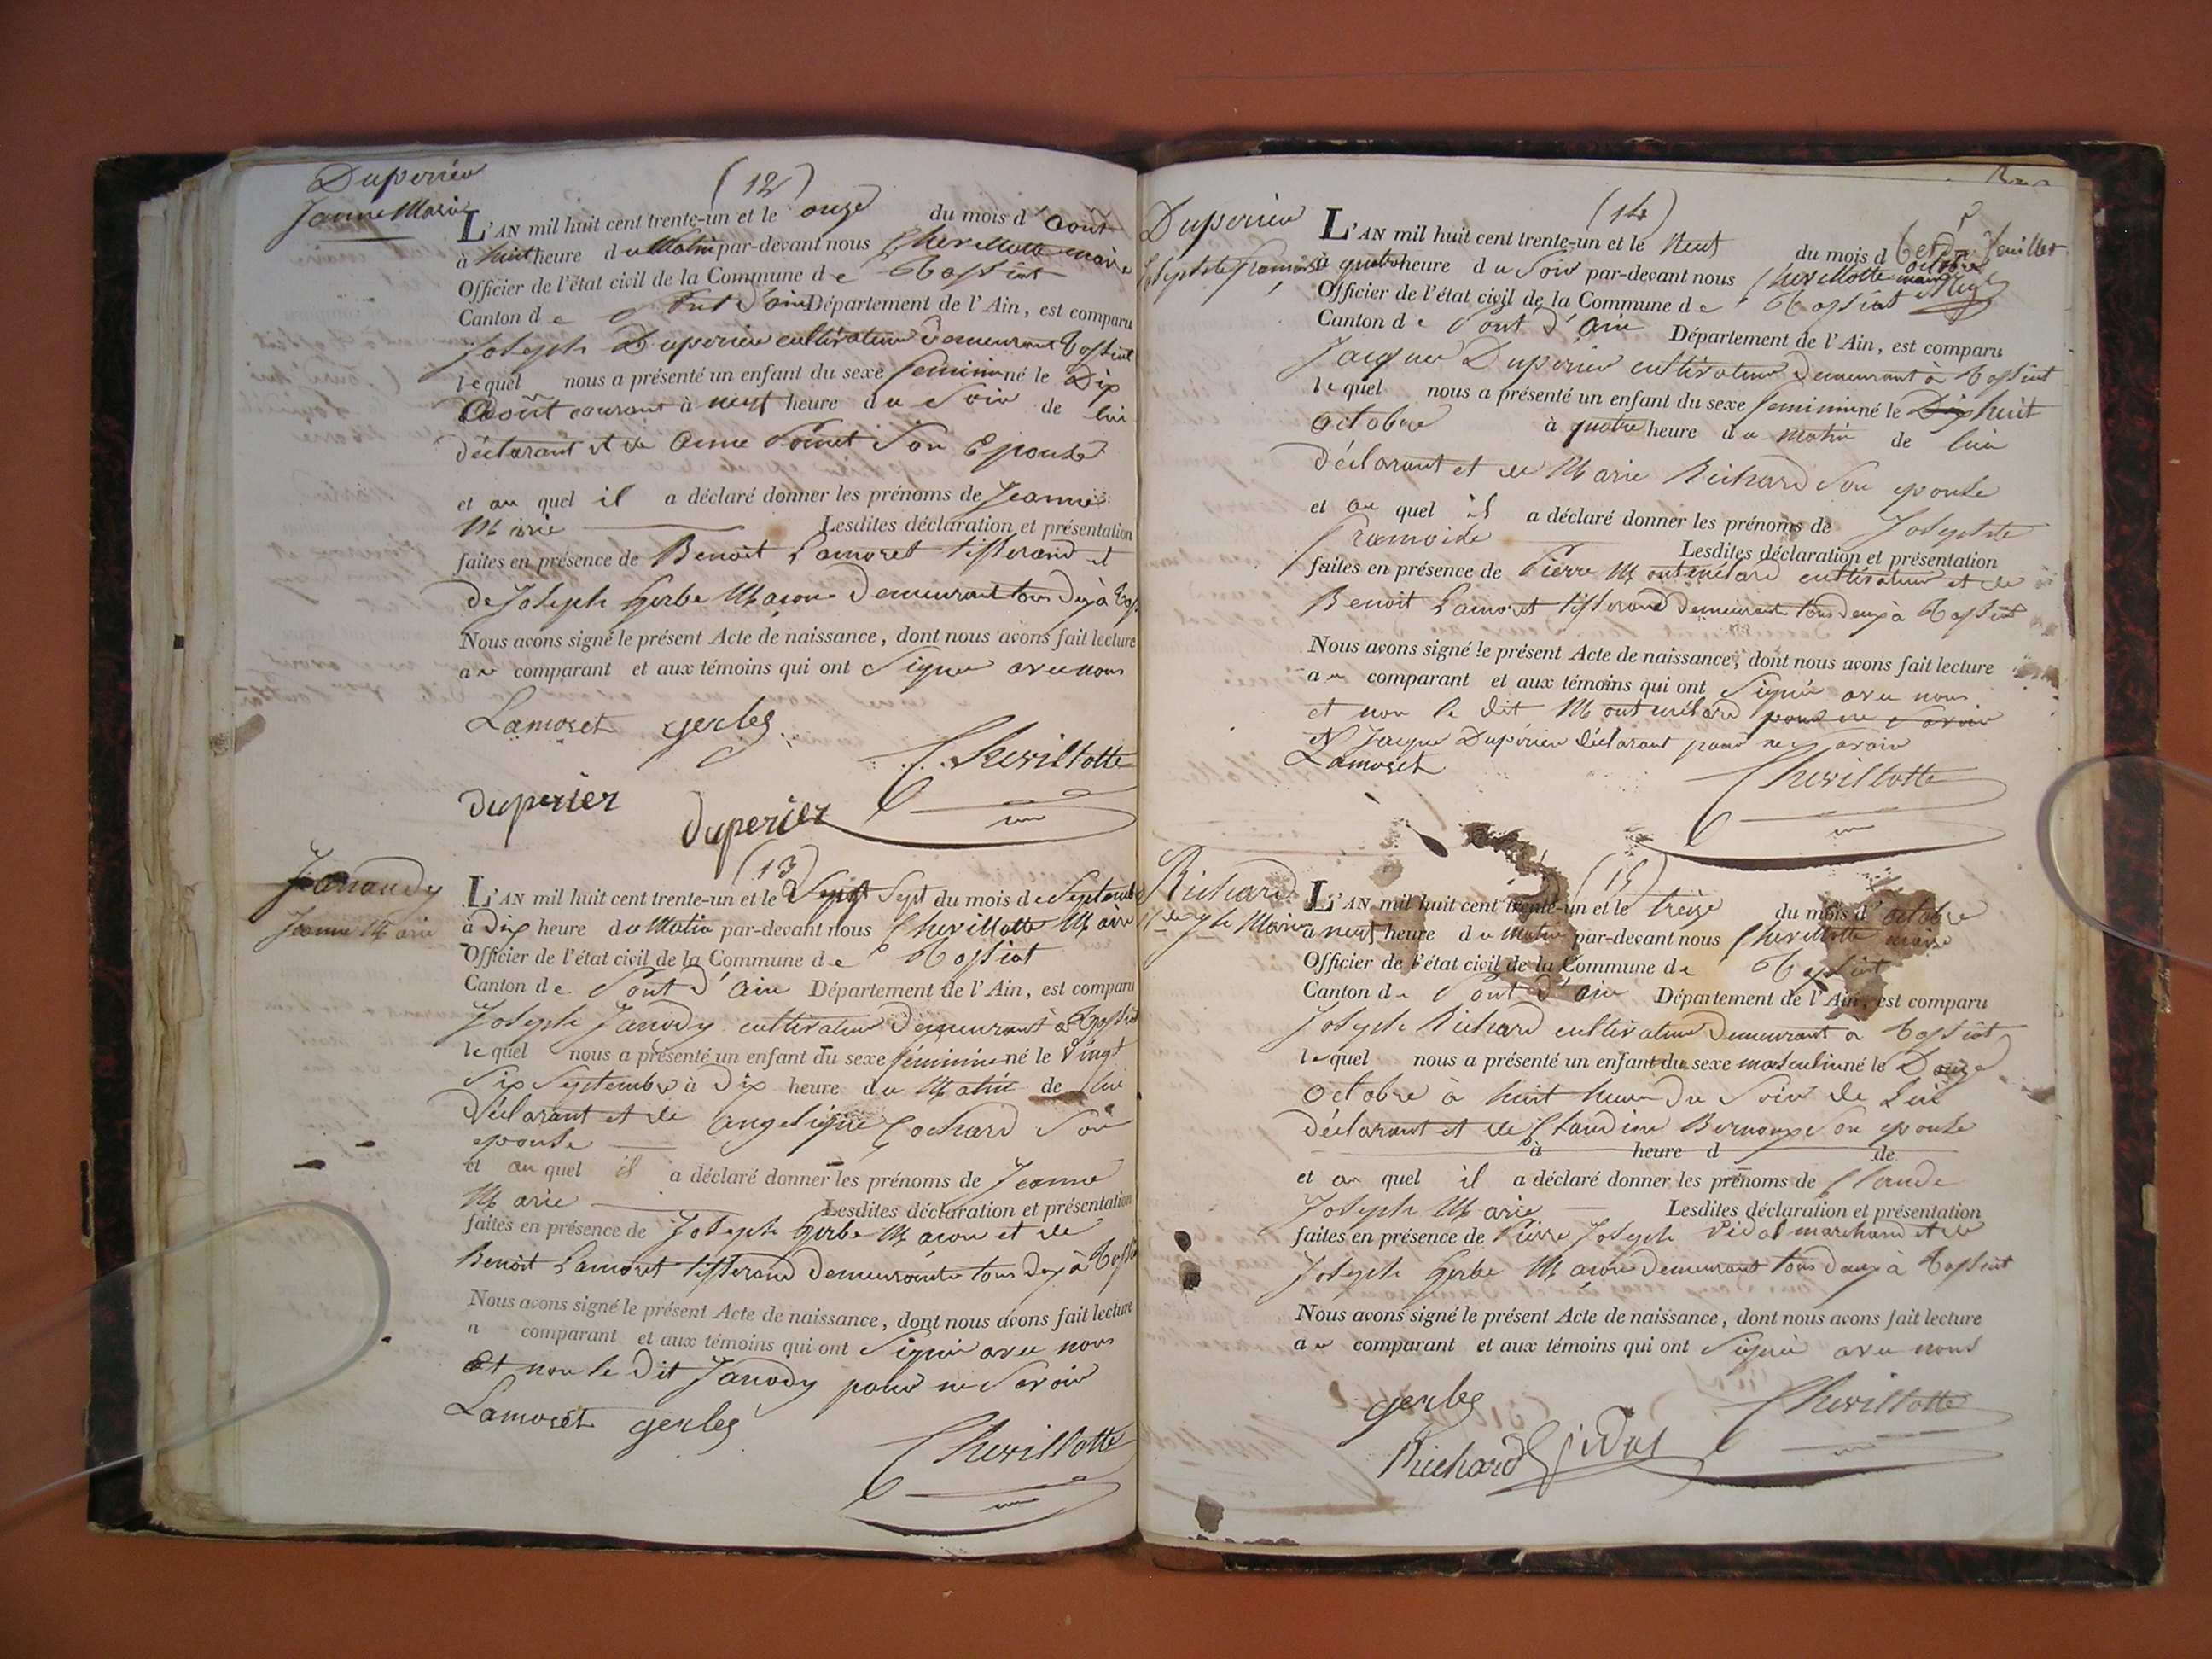 Duperieu
Jeanne Marie
(12)
L'AN mil huit cent trente-un et le onze du mois d'Août
à huit heure du Matin par-devant nous Chevillotte maire
Officier de l'état civil de la Commune de Tossiat
Canton de Pont d'Ain Département de l'Ain, est comparu
Joseph Duperieu cultivateur Demeurant Tossiat
lequel nous a présenté un enfant du sexe feminin né le Dix
Août courant à neuf heure du Soir de lui
déclarant et de Anne Son Epouse
et au quel il a déclaré donner les prénoms de Jeanne
Marie Lesdites déclaration et présentation
faites en présence de Benoit Lamoret tisserand et
de Joseph Gerbe Maçon Demeurant tous deux à Toss
Nous avons signé le présent Acte de naissance, dont nous avons fait lecture
au comparant et aux témoins qui ont Signé avec nous
Lamoret gerbe
Chevillotte
duperier duperier
Janaudy
Jeanne Marie
(13)
L'AN mil huit cent trente-un et le Vingt Sept du mois de Septembre
à Dix heure du Matin par-devant nous Chevillotte Maire
Officier de l'état civil de la Commune de Tossiat
Canton de Pont d'Ain Département de l'Ain, est comparu
Joseph Janody cultivateur Demeurant à Tossiat
lequel nous a présenté un enfant du sexe féminin né le Vingt
Six Septembre à Dix heure du Matin de lui
Déclarant et de Angelique Cochard Son
epouse
et au quel il a déclaré donner les prénoms de Jeanne
Marie Lesdites déclaration et présentation
faites en présence de Joseph Gerbe Maçon et de
Benoit Lamoret tisserand Demeurants tous deux à Toss
Nous avons signé le présent Acte de naissance, dont nous avons fait lecture
a comparant et aux témoins qui ont Signé avec nous
Et non le dit Janody pour ne Savoir
Lamoret gerbe
Chevillotte
Duperieu
Josephte Framoise
(14)
L'AN mil huit cent trente-un et le Neuf du mois d octobre
à quatre heure du Soir par-devant nous Chevillotte maire
Officier de l'état civil de la Commune de Tossiat
Canton de Pont d'Ain Département de l'Ain, est comparu
Jacques Duperieu cultivateur Demeurant à Tossiat
lequel nous a présenté un enfant du sexe feminin né le Dix huit
octobre à quatre heure du matin de lui
déclarant et de Marie Richard Son epouse
et au quel il a déclaré donner les prénoms de Josephte
Framoise Lesdites déclaration et présentation
faites en présence de Pierre Montmélard cultivateur et de
Benoit Lamoret tisserand Demeurants tous deux à Tossiat
Nous avons signé le présent Acte de naissance, dont nous avons fait lecture
au comparant et aux témoins qui ont Signé avec nous
et non le dit Montmélard pour ne Savoir
et Jacque Duperieu déclarant pour ne Savoir
Lamoret
Chevillotte
Richard
Cde Jph Marie
(15)
L'AN mil huit cent trente-un et le treize du mois d'octobre
à neuf heure du Matin par-devant nous Chevillotte maire
Officier de l'état civil de la Commune de Tossiat
Canton de Pont d'Ain Département de l'Ain, est comparu
Joseph Richard cultivateur Demeurant a Tossiat
lequel nous a présenté un enfant du sexe masculin né le Douze
Octobre à huit heure Du Soir de Lui
Déclarant et de Claudine Bernoux Son epouse
à heure d de
et au quel il a déclaré donner les prénoms de Claude
Joseph Marie Lesdites déclaration et présentation
faites en présence de Pierre Joseph Vidal marchand et de
Joseph Gerbe Maçon Demeurant tous deux à Tossiat
Nous avons signé le présent Acte de naissance, dont nous avons fait lecture
au comparant et aux témoins qui ont Signé avec nous
gerbe
Chevillotte
Richard Vidal